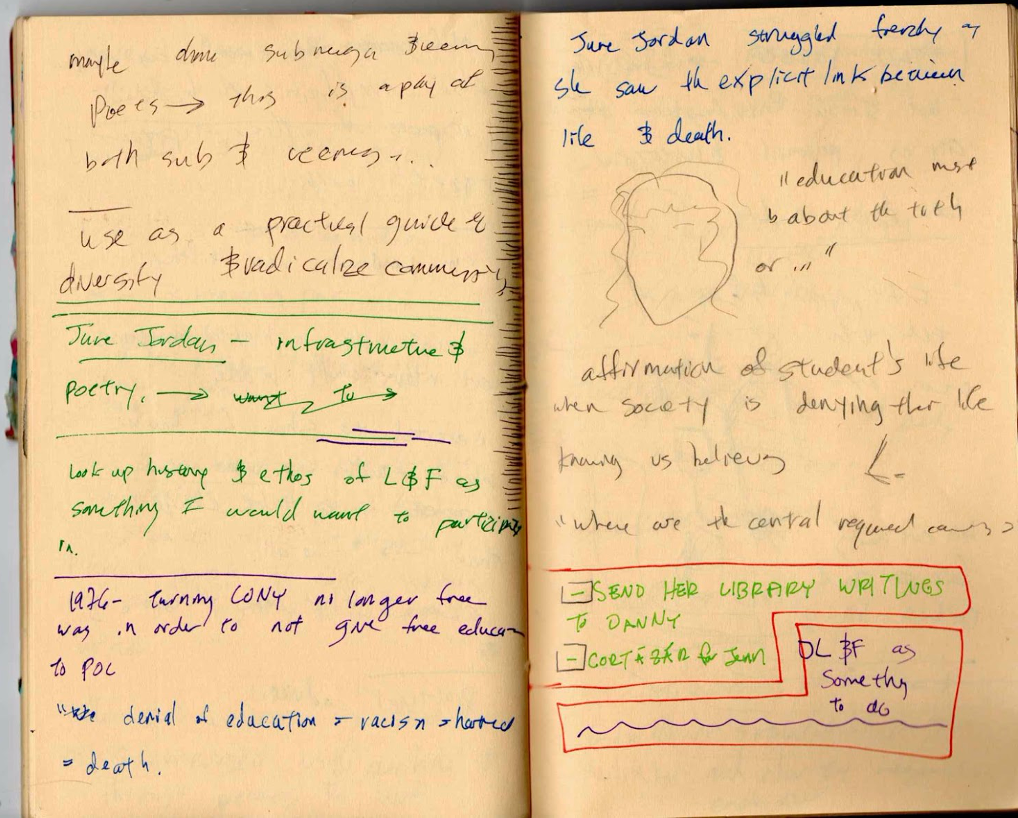 maybe
Poets → this is a play of
both sub $
use as a practical guide &
diversity $ radicalize
June Jordan — infrastructure $
poetry. → want to →
Look up history $ ethos of L$F as
something I would want to
in.
1976- turning CUNY no longer free
was in order to not give free
to POC
denial of education = racism = hatred
= death.
June Jordan struggled
she saw the explicit link between
life $ death.
"education must
b about the truth
or ..."
affirmation of student's life
when society is denying their life
knowing us
"where are the central required
SEND HER LIBRARY WRITINGS
TO DANNY
for Jenn
L$F as
Something
to do